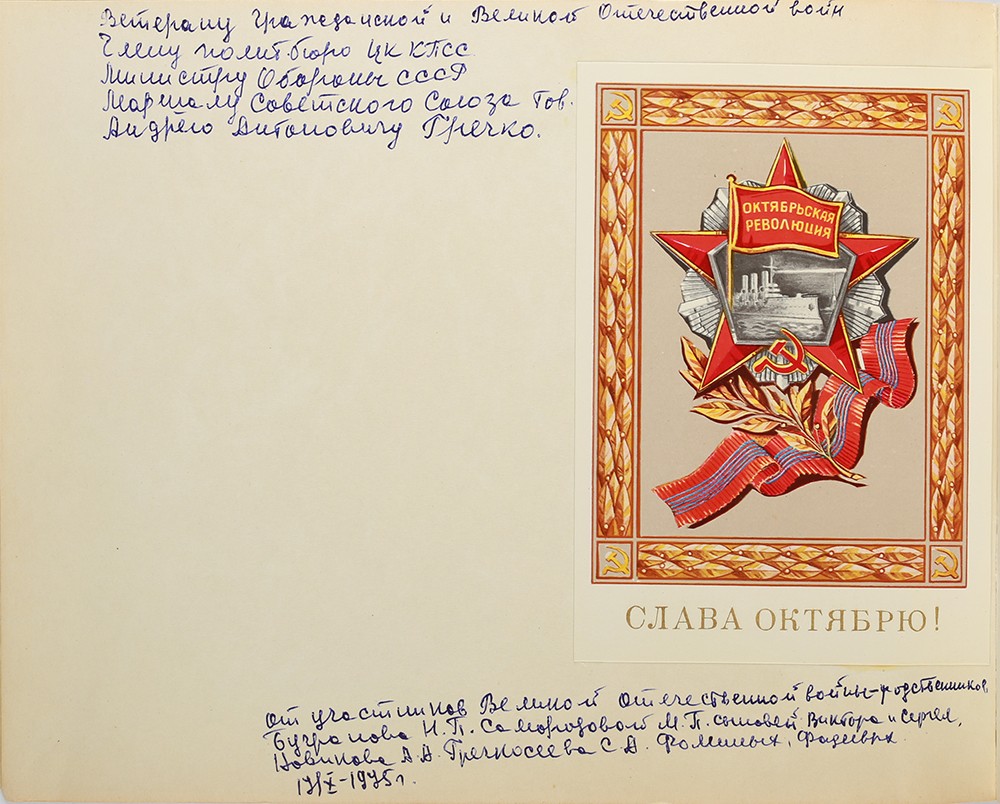 Ветерану Гражданской и Великой Отечественной войн
Члену политбюро ЦК КПСС
Министру Обороны СССР
Маршалу Советского Союза тов.
Андрею Антоновичу Гречко.
ОКТЯБРЬСКАЯ
РЕВОЛЮЦИЯ
СЛАВА ОКТЯБРЮ!
От участников Великой Отечественной войны-родственников
Бугранова Н.П. Самородовой М.П. сыновей Виктора и Сергея,
Новикова А.А. Гречкосеева С.А. Фоминых, Фадеевых
17/X-1975г.